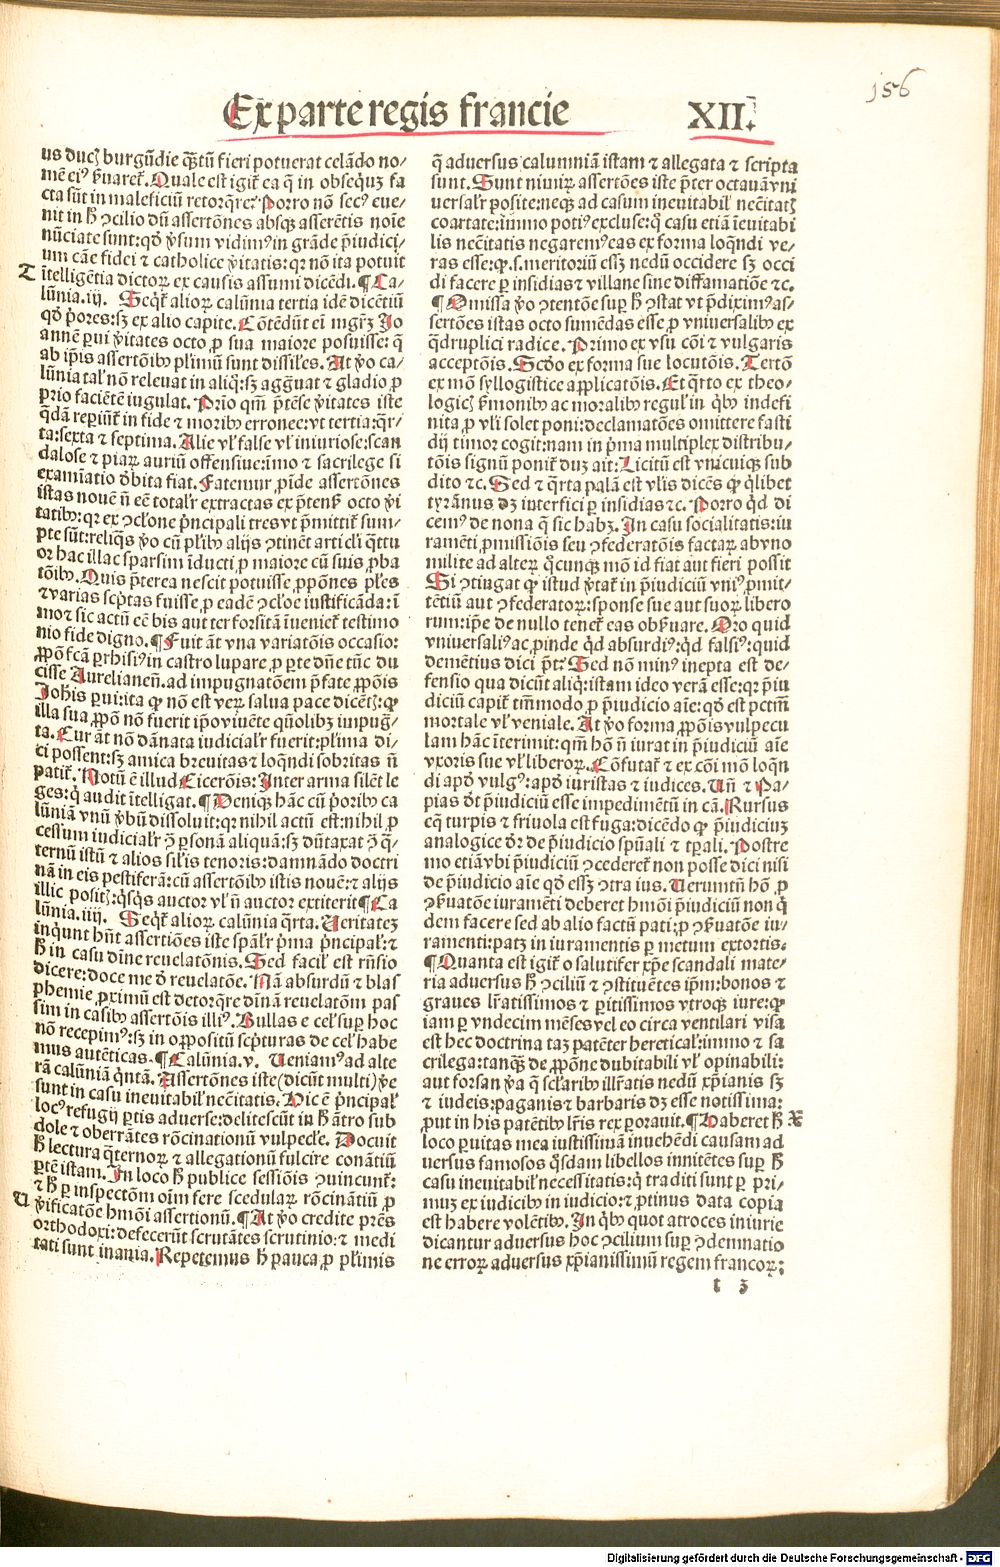 156
Ex parte regis francie XII.
us duc burgūdie q̄stū fieri potuerat celādo no/
mē ei⁹ ẜuaret. Quale est igit̄ ea q̄ in obsequȝ fa
cta sūt in maleficiū retorq̄re? Porro nō sec⁹ eue/
nit in ħ ꝯcilio dū assertōnes absqȝ asserētis noīe
nūciate sunt: qđ ipsum vidim⁹ in grāde p̄iudici/
um cāe fidei ⁊ catholice v̄itatis: qr nō ita potuit
T
ītelligētia dictoꝝ ex causis assumi dicēdi. ¶ Ca/
lūnia.iij. Seqt̄ alioꝝ calūnia tertia idē dicētiū
qđ p̄ores: sȝ ex alio capite. Cōtēdūt eī mgr̄ȝ Jo
annē ꝑui v̄itates octo ꝓ sua maiore posuisse: q̄
ab ip̄is assertōibꝰ pl̄imū sunt dissil̄es. At v̄o ca/
lūnia tal̄ nō releuat in aliq̄: sȝ aggūat ⁊ gladio ꝓ
prio faciētē iugulat. Prīo qm̄ p̄tēse v̄itates iste
q̄dā reꝑiūt̄ in fide ⁊ moribꝰ erronee: vt tertia: q̄r/
ta: sexta ⁊ septima. Alie vl̄ false vl̄ iniuriose: scan
dalose ⁊ piaꝝ auriū offensiue: īmo ⁊ sacrilege si
examīatio dēbita fiat. Fatemur ꝓīde assertōnes
istas nouē n̄ eē total̄r extractas ex p̄tensꝭ octo v̄i
tatibꝰ: qr ex ꝯcl̄one p̄ncipali tres vt p̄mittit̄ sum/
pte sūt: reliq̄s v̄o cū pl̄ibꝰ alijs ꝯtinēt articl̄i q̄ttu
or hac illac sparsim īducti ꝓ maiore cū suis ꝓba
tōibꝰ. Quis p̄terea nescit potuisse ꝓpōnes pl̄es
⁊ varias sc̄ptas fuisse ꝓ eadē ꝯcl̄oe iustificāda: ī
mo ⁊ sic actū eē bis aut ter forsitā īueniet̄ testimo
nio fide digno. ¶ Fuit āt vna variatōis occasio:
ꝓpō fc̄a ꝑ rhisi⁹ in castro lupare ꝓ ꝑte dn̄e tūc du
cisse Aurelianen̄. ad impugnatōem p̄fate ꝓpōis
Joh̄is ꝑui: ita ꝙ nō est veꝝ salua pace dicētꝭ: ꝙ
illa sua ꝓpō nō fuerit ip̄o viuēte qūolibȝ impuḡ/
ta. Cur āt nō dānata iudicial̄r fuerit: pl̄ima di/
ci possent: sȝ amica breuitas ⁊ loqn̄di sobritas n̄
patit̄. Notū ē illud Cicerōis: Inter arma silēt le
ges: q̄ audit ītelligat. ¶ Deniqȝ hāc cū p̄oribꝰ ca
lūniā vnū v̄bū dissoluit: qr nihil actū est: nihil ꝓ
cessum iudicial̄r ꝯ̄ ꝑsonā aliquā: sȝ dūtaxat ꝯ̄ q̄/
ternū istū ⁊ alios sil̄is tenoris: damnādo doctri
nā in eis pestiferā: cū assertōibꝰ istis nouē: ⁊ alijs
illic positꝭ: qsqs auctor vl̄ n̄ auctor extiterit ¶ Ca
lūnia.iiij. Seqt̄ alioꝝ calūnia q̄rta. Ueritateȝ
inqunt hn̄t assertiōes iste spāl̄r p̄ma p̄ncipal̄: ⁊
ħ in casu dīne reuelatōnis. Sed facil̄ est rn̄sio
dicere: doce me đ reuelatōe. Nā absurdū ⁊ blas
phemie ꝓximū est detorq̄re dīnā reuelatōm pas
sim in casibꝰ assertōis illi⁹. Bullas e cel̄ suꝑ hoc
nō recepim⁹: sȝ in oppositū sc̄pturas de cel̄ habe
mus autēticas. ¶ Calūnia.v. Ueniam⁹ ad alte
rā calūniā q̄ntā. Assertōnes iste (dicūt multi) v̄e
sunt in casu ineuitabil̄ nec̄itatis. Hic ē p̄ncipal̄
loc⁹ refugij ꝑtis aduerse: delitescūt in ħ ātro sub
dole ⁊ oberrātes rōcinationū vulpecl̄e. Docuit
ħ lectura q̄ternoꝝ ⁊ allegationū fulcire conātiū
ꝑtē istam. In loco ħ publice sessiōis ꝯuincunt̄:
U
⁊ ħ ꝑ inspectōm oīm fere scedulaꝝ rōcināntiū ꝓ
v̄ificatōe hmōi assertionū. ¶ At v̄o credite pr̄ēs
orthodoxi: defecerūt scrutātes scrutinio: ⁊ medi
tati sunt inania. Repetemus ħ pauca ꝓ pl̄imis
q̄ aduersus calumniā istam ⁊ allegata ⁊ scripta
sunt. Sunt nimiꝝ assertōes iste p̄ter octauā vni
uersal̄r posite: neqȝ ad casum ineuitabil̄ nec̄itatꝭ
coartate: īmmo poti⁹ excluse: q̄ casu etiā īeuitabi
lis nec̄itatis negarem⁹ eas ex forma loqn̄di ve/
ras esse: ꝙ .s. meritoriū essȝ nedū occidere sȝ occi
di facere ꝑ insidias ⁊ villane sine diffamatiōe ⁊c.
¶ Omissa v̄o ꝯtentōe suꝑ ħ ꝯstat vt p̄dixim⁹ as/
sertōes istas octo sumēdas esse ꝓ vniuersalibꝰ ex
q̄druplici radice. Primo ex vsu cōi ⁊ vulgaris
acceptōis. Scđo ex forma sue locutōis. Tertō
ex mō syllogistice applicatōis. Et q̄rto ex theo/
logicꝭ ẜmonibꝰ ac moralibꝰ regul̄ in q̄bꝰ indefi
nita ꝓ vl̄i solet poni: declamatōes omittere fasti
dij timor cogit: nam in p̄ma multiplex distribu/
tōis signū ponit̄ duȝ ait: Licitū est vnicuiqȝ sub
dito ⁊c. Sed ⁊ q̄rta palā est vl̄is dicēs ꝙ q̄libet
tyrānus dȝ interfici ꝑ insidias ⁊c. Porro q̄d di
cem⁹ de nona q̄ sic habȝ. In casu socialitatis: iu
ramēti ꝓmissiōis seu ꝯfederatōis factaꝝ ab vno
milite ad alteꝝ q̄cunqȝ mō id fiat aut fieri possit
Si ꝯtingat ꝙ istud v̄tat̄ in p̄iudiciū vni⁹ ꝓmit/
tētiū aut ꝯfederatoꝝ: sponse sue aut suoꝝ libero
rum: ip̄e de nullo tenet̄ eas obẜuare. Pro quid
vniuersali⁹ ac ꝓinde q̄d absurdi⁹: q̄d falsi⁹: quid
demētius dici pt̄? Sed nō min⁹ inepta est de/
fensio qua dicūt aliq̄: istam ideo verā esse: qr p̄iu
diciū capit̄ tm̄modo ꝓ p̄iudicio aīe: qđ est pctm̄
mortale vl̄ veniale. At v̄o forma ꝓpōis vulpecu
lam hāc īterimit: qm̄ hō n̄ iurat in p̄iudiciū aīe
vxoris sue vl̄ liberoꝝ. Cōfutat̄ ⁊ ex cōi mō loqn̄
di apđ vulg⁹: apđ iuristas ⁊ iudices. Un̄ ⁊ Pa/
pias đt p̄iudiciū esse impedimētū in cā. Rursus
ecq̄ turpis ⁊ friuola est fuga: dicēdo ꝙ p̄iudiciuȝ
analogice dr̄ de p̄iudicio spūali ⁊ tꝑali. Postre
mo etiā vbi p̄iudiciū ꝯcederet̄ non posse dici nisi
de p̄iudicio aīe qđ essȝ ꝯtra ius. Uerumtn̄ hō ꝓ
ꝯẜuatōe iuramēti deberet hmōi p̄iudiciū non q̄
dem facere sed ab alio factū pati: ꝓ ꝯẜuatōe iu/
ramenti: patȝ in iuramentis ꝑ metum extortis.
¶ Quanta est igit̄ o salutifer xp̄e scandali mate/
ria aduersus ħ ꝯciliū ⁊ ꝯstituētes ip̄m: bonos ⁊
graues lr̄atissimos ⁊ ꝑitissimos vtroqȝ iure: ꝙ
iam ꝑ vndecim mēses vel eo circa ventilari visa
est hec doctrina taȝ patēter heretical̄: immo ⁊ sa
crilega: tanqȝ de ꝓpōne dubitabili vl̄ opinabili:
aut forsan v̄a q̄ scl̄aribꝰ illr̄atis nedū xp̄ianis sȝ
⁊ iudeis: paganis ⁊ barbaris dȝ esse notissima:
ꝓut in his patētibꝰ lr̄is rex ꝑorauit. ¶ Haberet ħ
X
loco ꝑuitas mea iustissimā inuehēdi causam ad
uersus famosos q̄sdam libellos innitētes suꝑ ħ
casu ineuitabil̄ necessitatis: q̄ traditi sunt ꝑ pri/
muȝ ex iudicibꝰ in iudicio: ⁊ ꝓtinus data copia
est habere volētibꝰ. In q̄bꝰ quot atroces iniurie
dicantur aduersus hoc ꝯcilium suꝑ ꝯdemnatio
ne erroꝝ aduersus xp̄ianissimū regem francoꝝ:
t 3
Digitalisierung gefördert durch die Deutsche Forschungsgemeinschaft - DFG